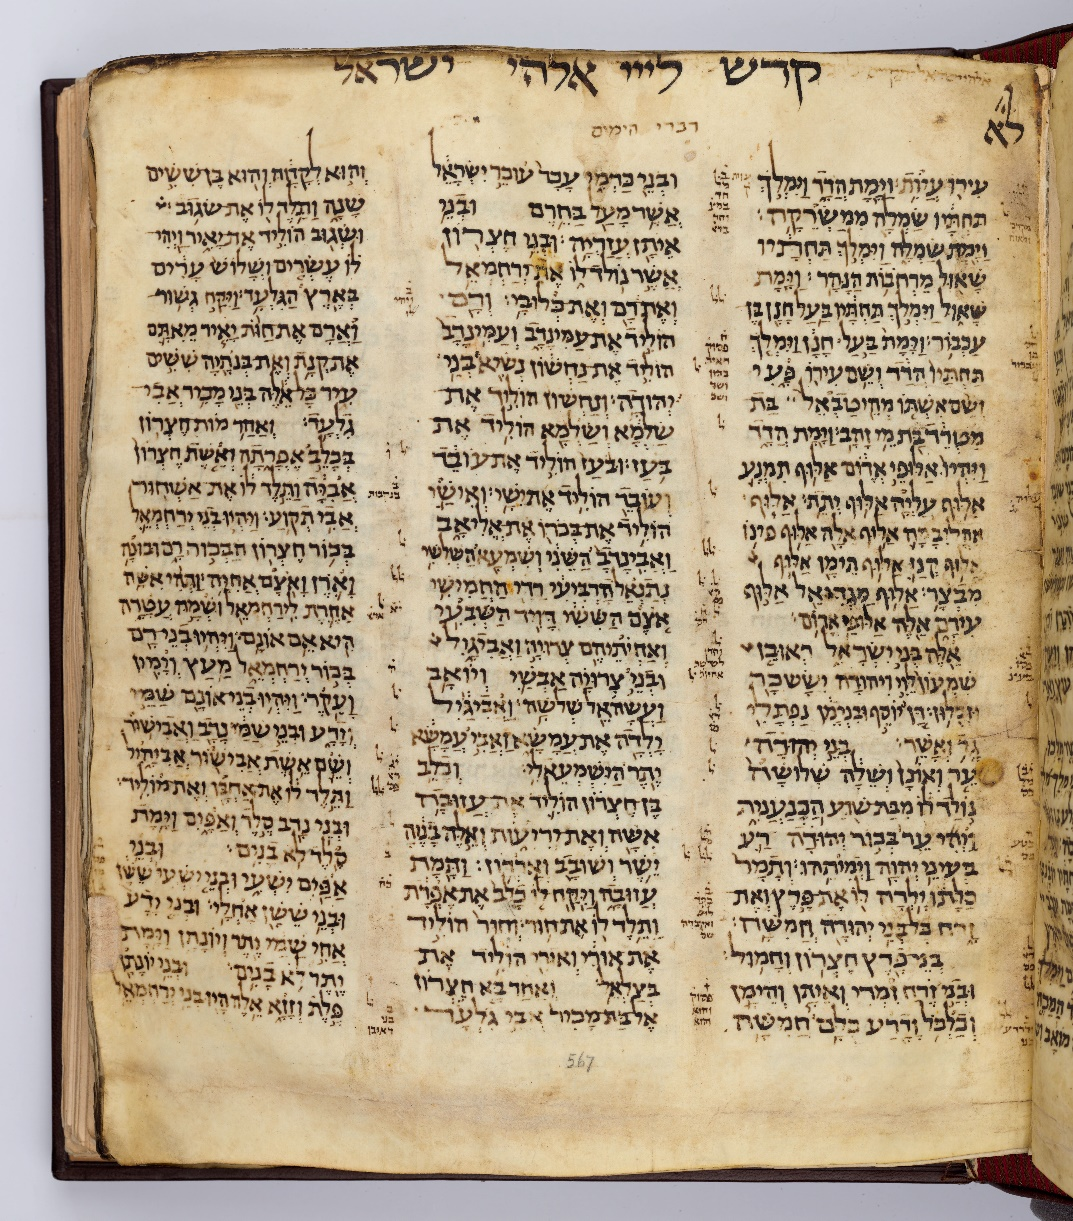 קדש לייי אלהי ישראל
לא
דברי הימים
עירו עוית וימת הדד וימלך
תחתיו שמלה ממשרקה
וימת שמלה וימלך תחתיו
שאול מרחבות הנהר וימת
שאול וימלך תחתיו בעל חנן בן
עכבור וימת בעל חנן וימלך
תחתיו הדד ושם עירו פעי
ושם אשתו מהיטבאל בת
מטרד בת מי זהב וימת הדד
ויהיו אלופי אדום אלוף תמנע
אלוף עליה אלוף יתת אלוף
אהליבמה אלוף אלה אלוף פינן
אלוף קנז אלוף תימן אלוף
מבצר אלוף מגדיאל אלוף
עירם אלה אלופי אדום
אלה בני ישראל ראובן
שמעון לוי ויהודה יששכר
וזבלון דן יוסף ובנימן נפתלי
גד ואשר בני יהודה
ער ואונן ושלה שלושה
נולד לו מבת שוע הכנענית
ויהי ער בכור יהודה רע
בעיני יהוה וימיתהו ותמר
כלתו ילדה לו את פרץ ואת
זרח כל בני יהודה חמשה
בני פרץ חצרון וחמול
ובני זרח זמרי ואיתן והימן
וכלכל ודרע כלם חמשה
ובני כרמי עכר עוכר ישראל
אשר מעל בחרם ובני
איתן עזריה ובני חצרון
אשר נולד לו את ירחמאל
ואת רם ואת כלובי ורם
הוליד את עמינדב ועמינדב
הוליד את נחשון נשיא בני
יהודה ונחשון הוליד את
שלמא ושלמא הוליד את
בעז ובעז הוליד את עובד
ועובד הוליד את ישי ואישי
הוליד את בכרו את אליאב
ואבינדב השני ושמעא השלישי
נתנאל הרביעי רדי החמישי
אצם הששי דויד השבעי
ואחיתיהם צרויה ואביגיל
ובני צרויה אבשי ויואב
ועשהאל שלשה ואביגיל
ילדה את עמשא ואבי עמשא
יתר הישמעאלי וכלב
בן חצרון הוליד את עזובה
אשה ואת יריעות ואלה בניה
ישר ושובב וארדון ותמת
עזובה ויקח לו כלב את אפרת
ותלד לו את חור וחור הוליד
את אורי ואורי הוליד את
בצלאל ואחר בא חצרון
אל בת מכיר אבי גלעד
והוא לקחה והוא בן ששים
שנה ותלד לו את שגוב
ושגוב הוליד את יאיר ויהי
לו עשרים ושלוש ערים
בארץ הגלעד ויקח גשור
וארם את חות יאיר מאתם
את קנת ואת בנתיה ששים
עיר כל אלה בני מכיר אבי
גלעד ואחר מות חצרון
בכלב אפרתה ואשת חצרון
אביה ותלד לו את אשחור
אבי תקוע ויהיו בני ירחמאל
בכור חצרון הבכור רם ובונה
וארן ואצם אחיה ותהי אשה
אחרת לירחמאל ושמה עטרה
היא אם אונם ויהיו בני רם
בכור ירחמאל מעץ וימין
ועקר ויהיו בני אונם שמי
וידע ובני שמי נדב ואבישור
ושם אשת אבישור אביחיל
ותלד לו את אחבן ואת מוליד
ובני נדב סלד ואפים וימת
סלד לא בנים ובני
אפים ישעי ובני ישעי ששן
ובני ששן אחלי ובני ידע
אחי שמי יתר ויונתן וימת
יתר לא בנים ובני יונתן
פלת וזזא אלה היו בני ירחמאל
567